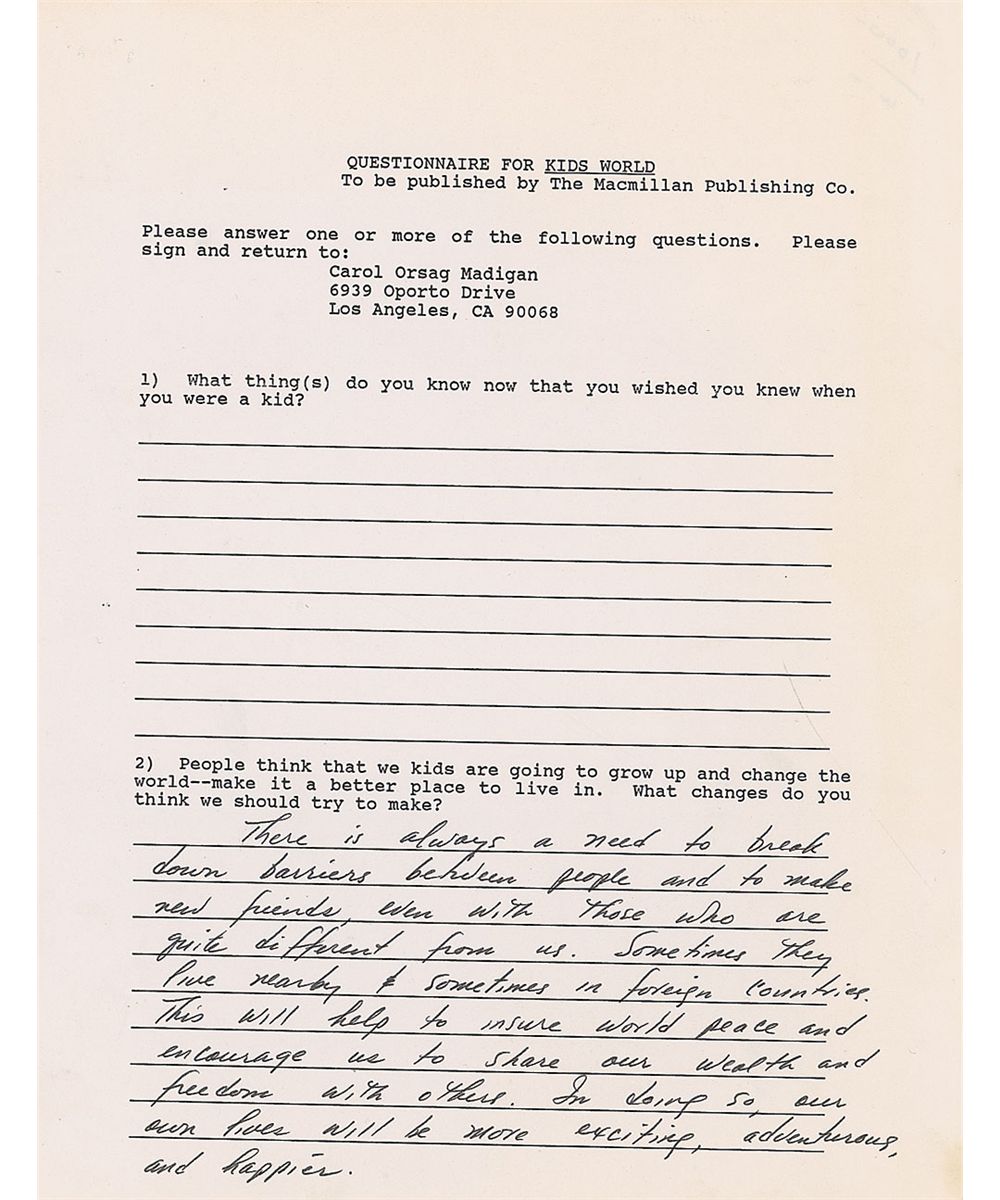 QUESTIONNAIRE FOR KIDS WORLD
To be published by The Macmillan Publishing Co.
Please answer one or more of the following questions. Please
sign and return to:
Carol Orsag Madigan
6939 Oporto Drive
Los Angeles, CA 90068
1) What thing(s) do you know now that you wished you knew when
you were a kid?
2) People think that we kids are going to grow up and change the
world--make it a better place to live in. What changes do you
think we should try to make?
There is always a need to break
down barriers between people and to make
new friends, even with those who are
quite different from us. Sometimes they
live nearby & sometimes in foreign countries.
This will help to insure world peace and
encourage us to share our wealth and
freedom with others. In doing so, our
own lives will be more exciting, adventurous,
and happier.